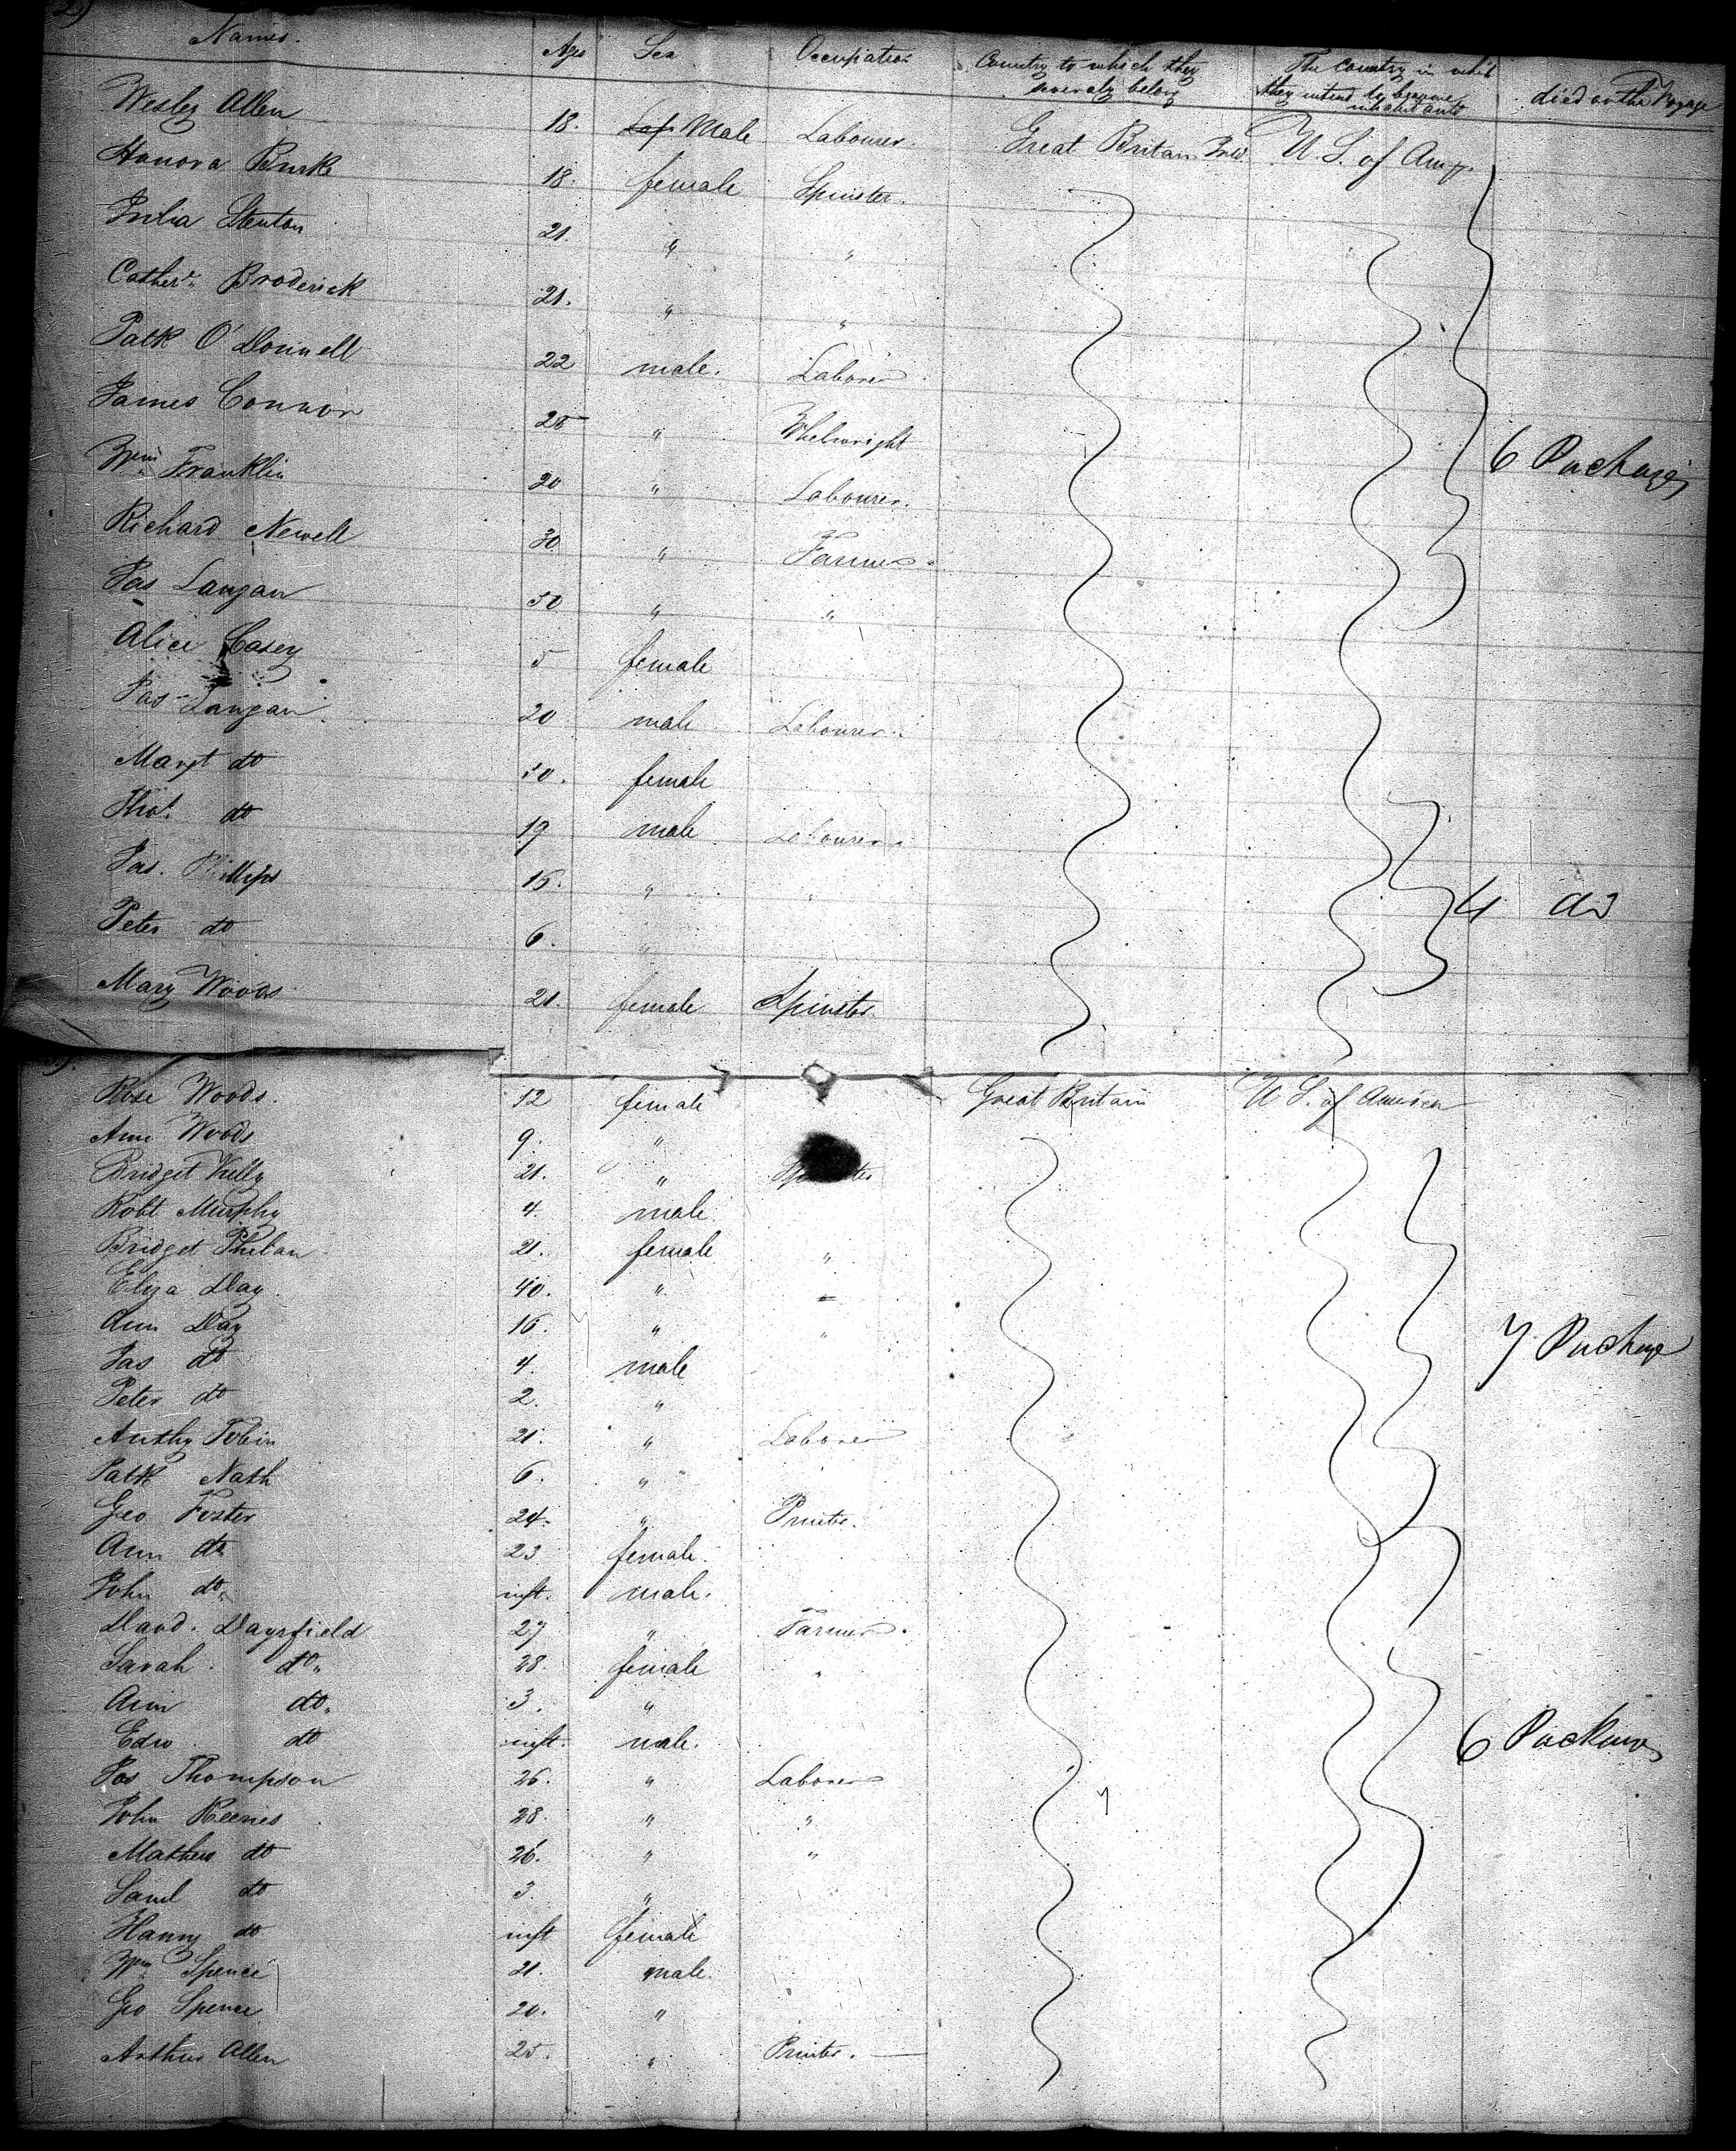 Names. Ages Sex Occupation Country to which they severaly belong The Country in which they intend to become inhabitants died on the Voyage
Wesley Allen 18. Male Labourer. Great Britain U S. of
Honora Burke 18. female Spinster.
Julia Stenton 21. " "
Cathe. Broderick 21. " "
Patk O'Donnell 22 male. Laborer.
James Connor 25 " Whelwright
Wm Franklin 20 " Labourer. 6 Packages
Richard Newell 30 " Farmer.
Jas Langan 50 " "
Alice Casey 5 female
Jas Langan 20 male Labourer.
Margt do 50. female
Thos. do 19 male Labourer.
Jas. Phillips 15. " " 4 do
Peter do 6. "
Mary Woods 21. female Spinster.
Rose Woods. 12 female Great Britain U S. of America
Ann Woods 9. "
Bridget Kelly 21. " Spinster
Robt Murphy 4. male
Bridget Phelan 21. female "
Eliza Day. 40. " "
Ann Day 16. " " 7 Package
Jas do 4. male
Peter do 2. "
Anthy Tobin 21. " Laborer
Patk Nash 6. "
Geo Foster 24. " Printer.
Ann do 23 female.
John do. inft. male.
Davd. Daysfield 27 " Farmer.
Sarah. do. 28. female "
Ann do. 3. "
Edw. do inft. male. 6 Packages
Jos Thompson 26. " Laborer
John Reenes 28. " "
Mathew do 26. " "
Saml do 3. "
Hanny do inft female
Wm Spence 21. male.
Geo Spence 20. "
Arthur Allen 25. " Printer.